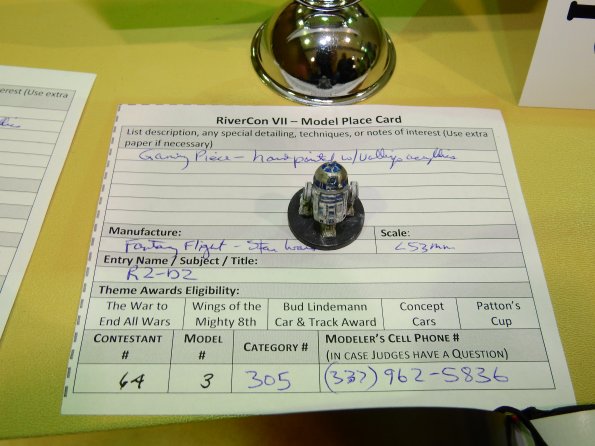 erest (Use extra
RiverCon VII – Model Place Card
List description, any special detailing, techniques, or notes of interest (Use extra
paper if necessary)
Gaming Piece – hand painted w/ Vallejo acrylics
Manufacture:
Scale:
Fantasy Flight - Star Wars
<53mm
Entry Name / Subject / Title:
R2-D2
Theme Awards Eligibility:
The War to
End All Wars
Wings of the
Mighty 8th
Bud Lindemann
Car & Track Award
Concept
Cars
Patton's
Cup
CONTESTANT
#
MODEL
#
CATEGORY #
MODELER'S CELL PHONE #
(IN CASE JUDGES HAVE A QUESTION)
64
3
305
(337) 962-5836